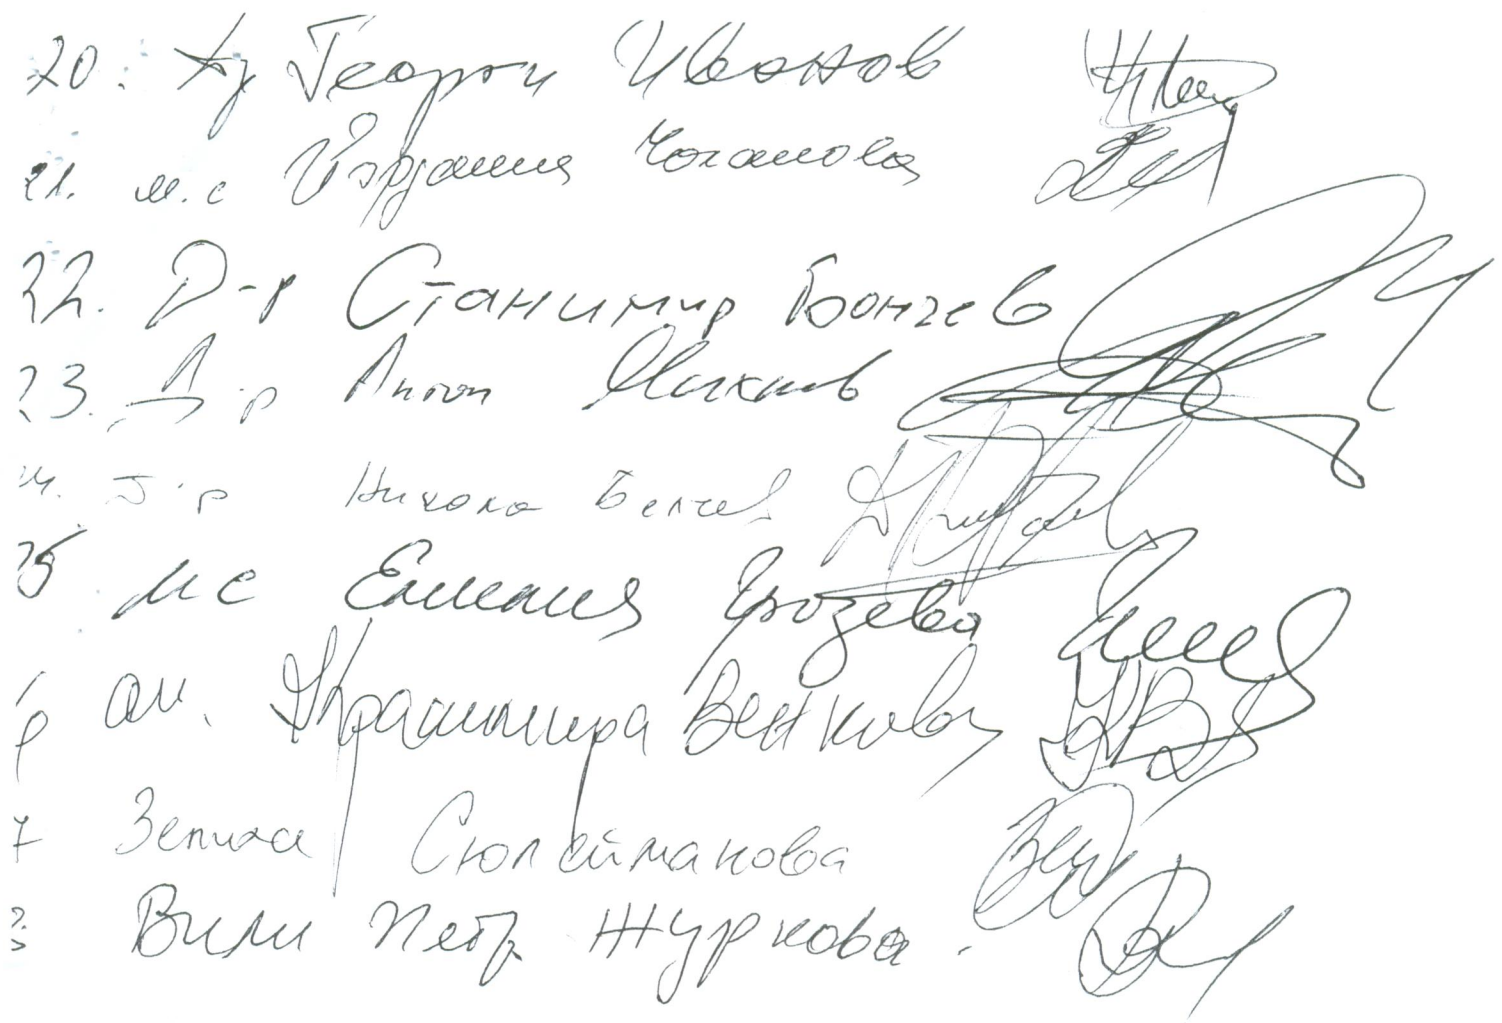 20. Др Георги Иванов
21. м.с Йорданка Чоганова
22. Д-р Станимир Бончев
23. Д-р Антон
24. Д-р Никола Белчев
25 мс Емилия Грозева
6 ан. Красимира Венкова
7 Зелиха Сюлейманова
Вили Петр. Журкова.